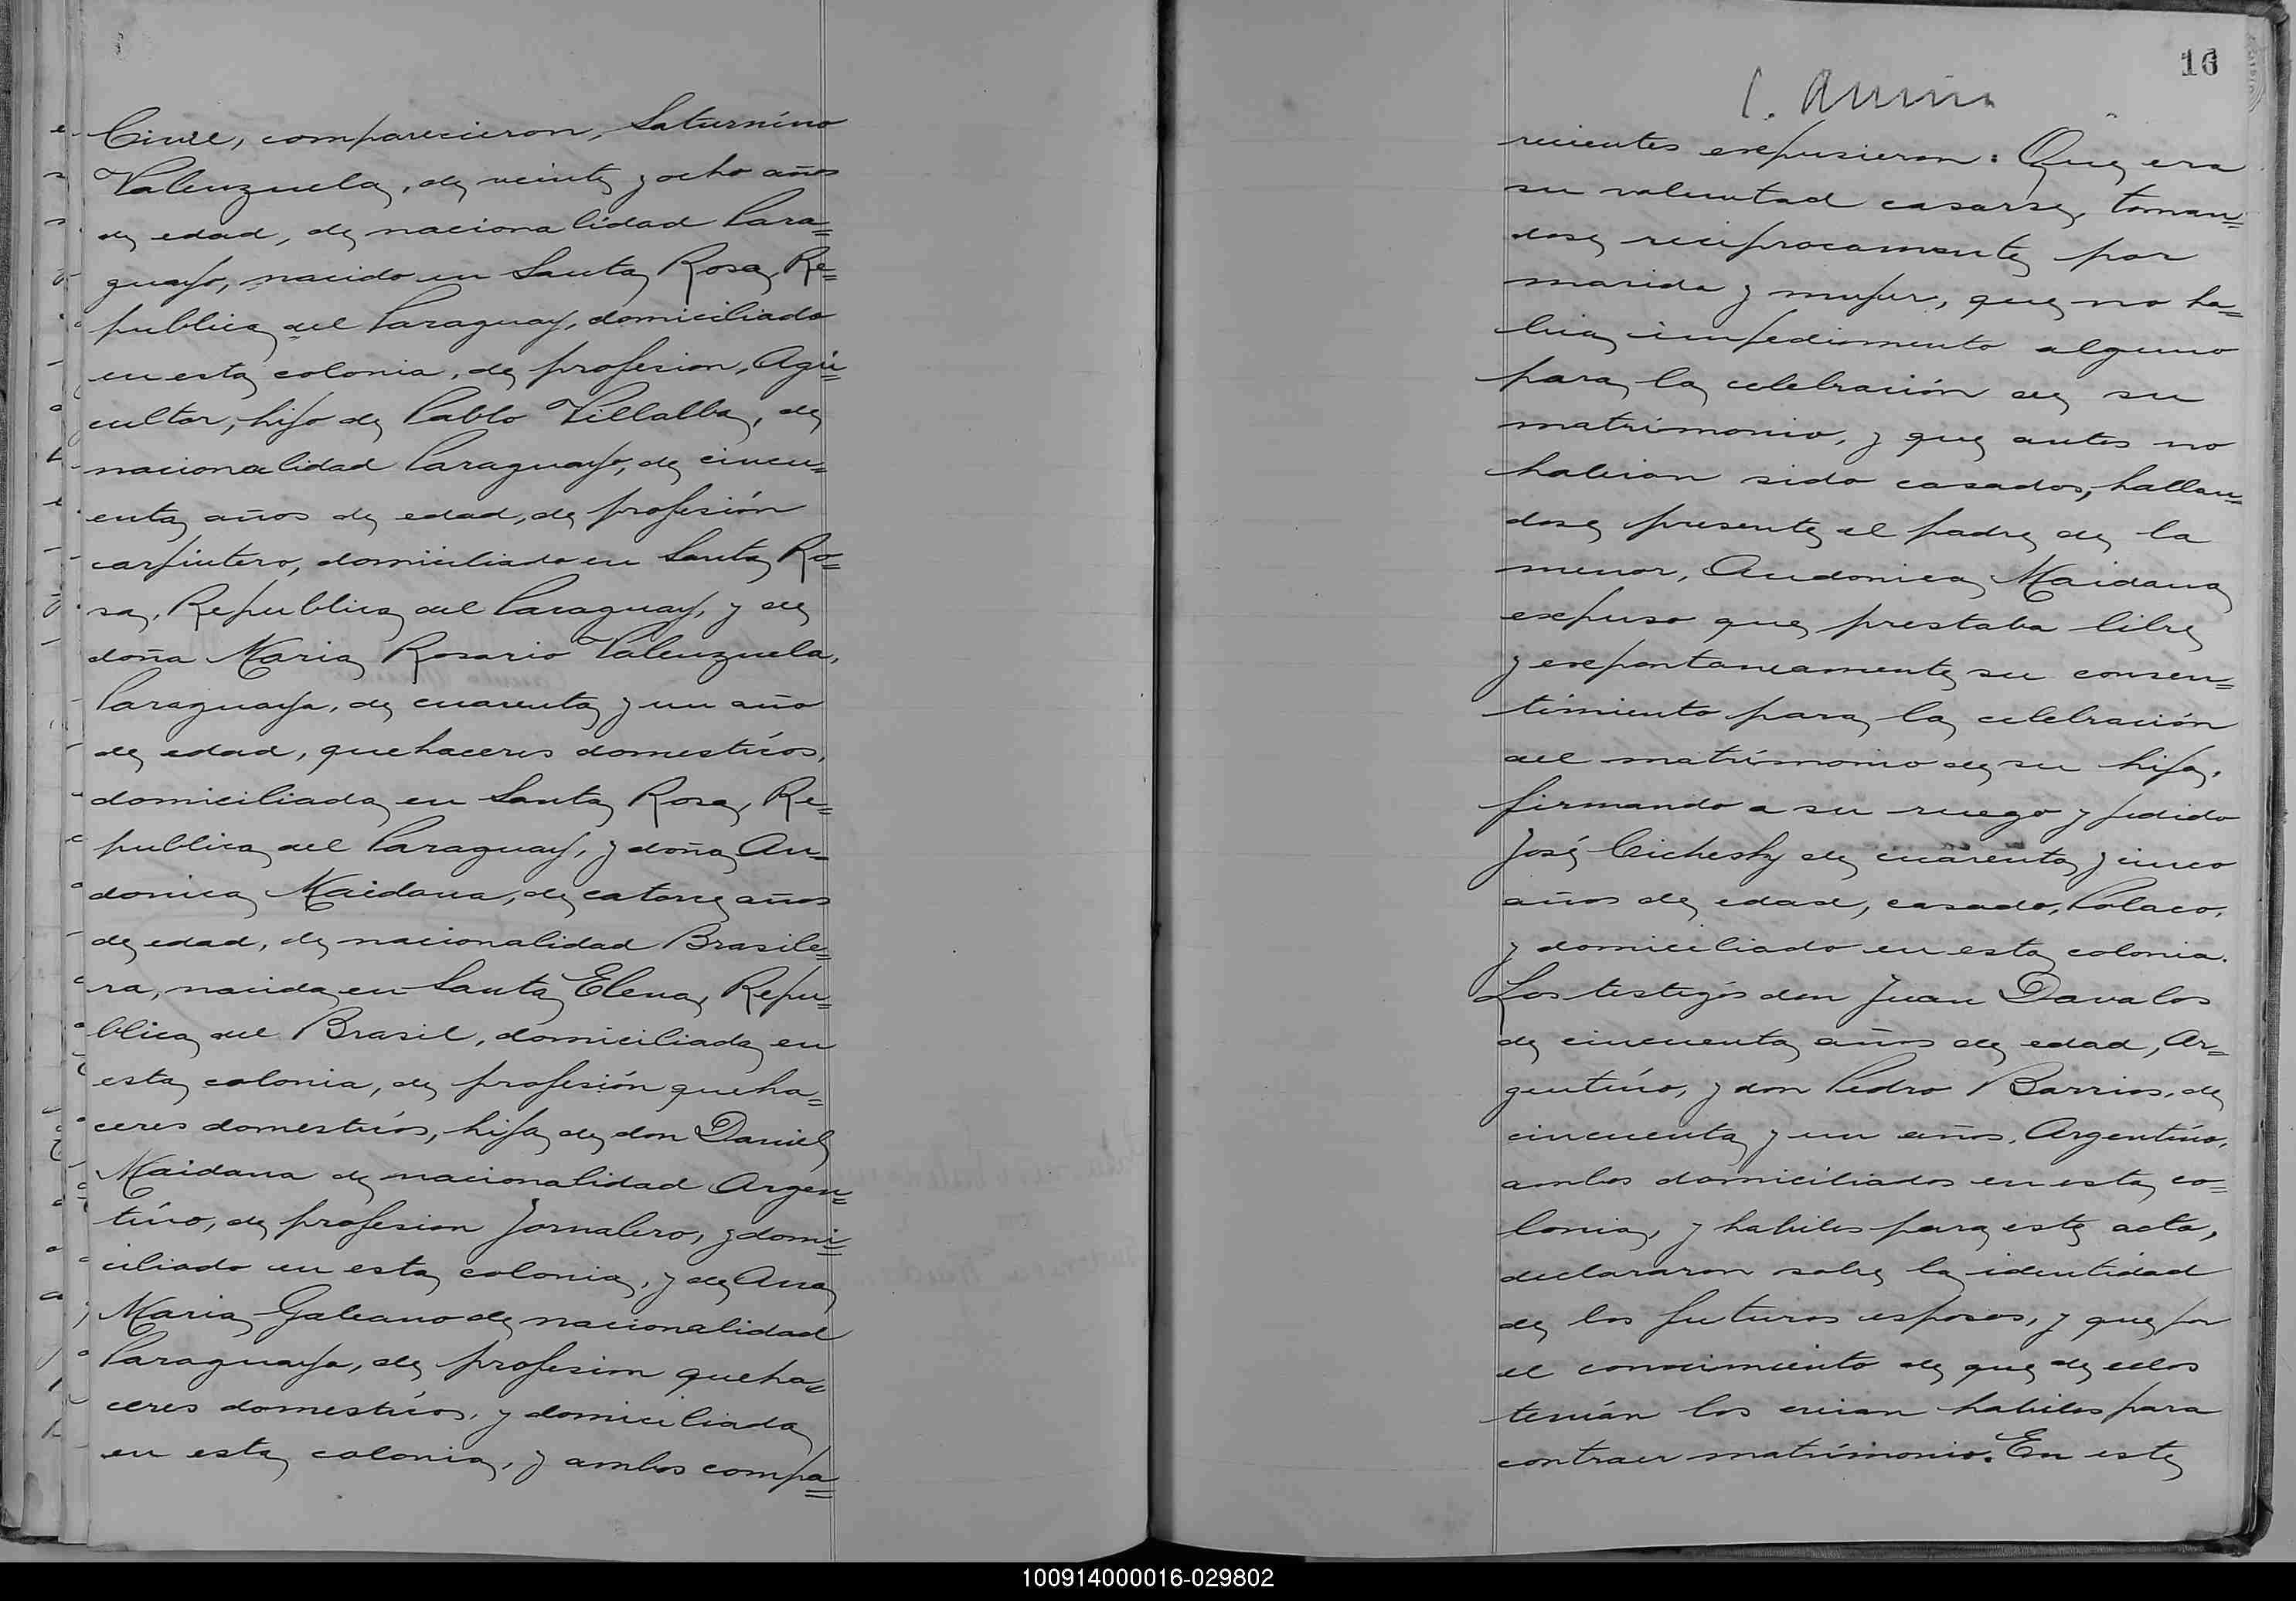 Civil, comparecieron, Saturnino
Valenzuela, de veinte y ocho años
de edad, de nacionalidad Para=
guayo, nacido en Santa Rosa, Re=
publica del Paraguay, domiciliado
en esta colonia, de profesion, Agri=
cultor, hijo de Pablo Villalba, de
nacionalidad Paraguayo, de cincu=
enta años de edad, de profesión
carpintero, domiciliado en Santa Ro=
sa, Republica del Paraguay, y de
doña Maria Rosario Valenzuela,
Paraguaya, de cuarenta y un año
de edad, quehaceres domesticos,
domiciliada en Santa Rosa, Re=
publica del Paraguay, y doña An=
donica Maidana, de catorce años
de edad, de nacionalidad Brasile=
ra, nacida en Santa Elena, Repu=
blica del Brasil, domiciliada en
esta colonia, de profesión queha=
ceres domesticos, hija de don Daniel
Maidana de nacionalidad Argen=
tino, de profesion Jornalero, y domi=
ciliado en esta colonia, y de Ana
Maria Galeano de nacionalidad
Paraguaya, de profesion queha=
ceres domesticos, y domiciliada
en esta colonia, y ambos compa=
16
recientes expusieron: Que era
su voluntad casarse, toman=
dose reciprocamente por
marido y mujer, que no ha=
bia impedimento alguno
para la celebración de su
matrimonio, y que antes no
habian sido casados, hallan=
dose presente el padre de la
menor, Andonica Maidana
expuso que prestaba libre
y expontaneamente su consen=
timiento para la celebración
del matrimonio de su hija,
firmando a su ruego y pedido
José Cichesky de cuarenta y cinco
años de edad, casado, Polaco,
y domiciliado en esta colonia.
Los testigos don Juan Davalos
de cincuenta años de edad, Ar=
gentino, y don Pedro Barrios, de
cincuenta y un años, Argentino,
ambos domiciliados en esta co=
lonia, y habiles para este acto,
declararon sobre la identidad
de los futuros esposos, y que por
el conocimiento de que de ellos
tenían los creian habiles para
contraer matrimonio. En este
100914000016-029802